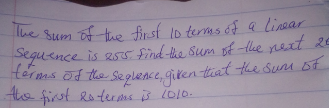 The sum of the first 10 terms of a linear
sequence is 255 find the sum of the next 20
terms of the sequence, given that the sum of
the first 20 terms is 1010.